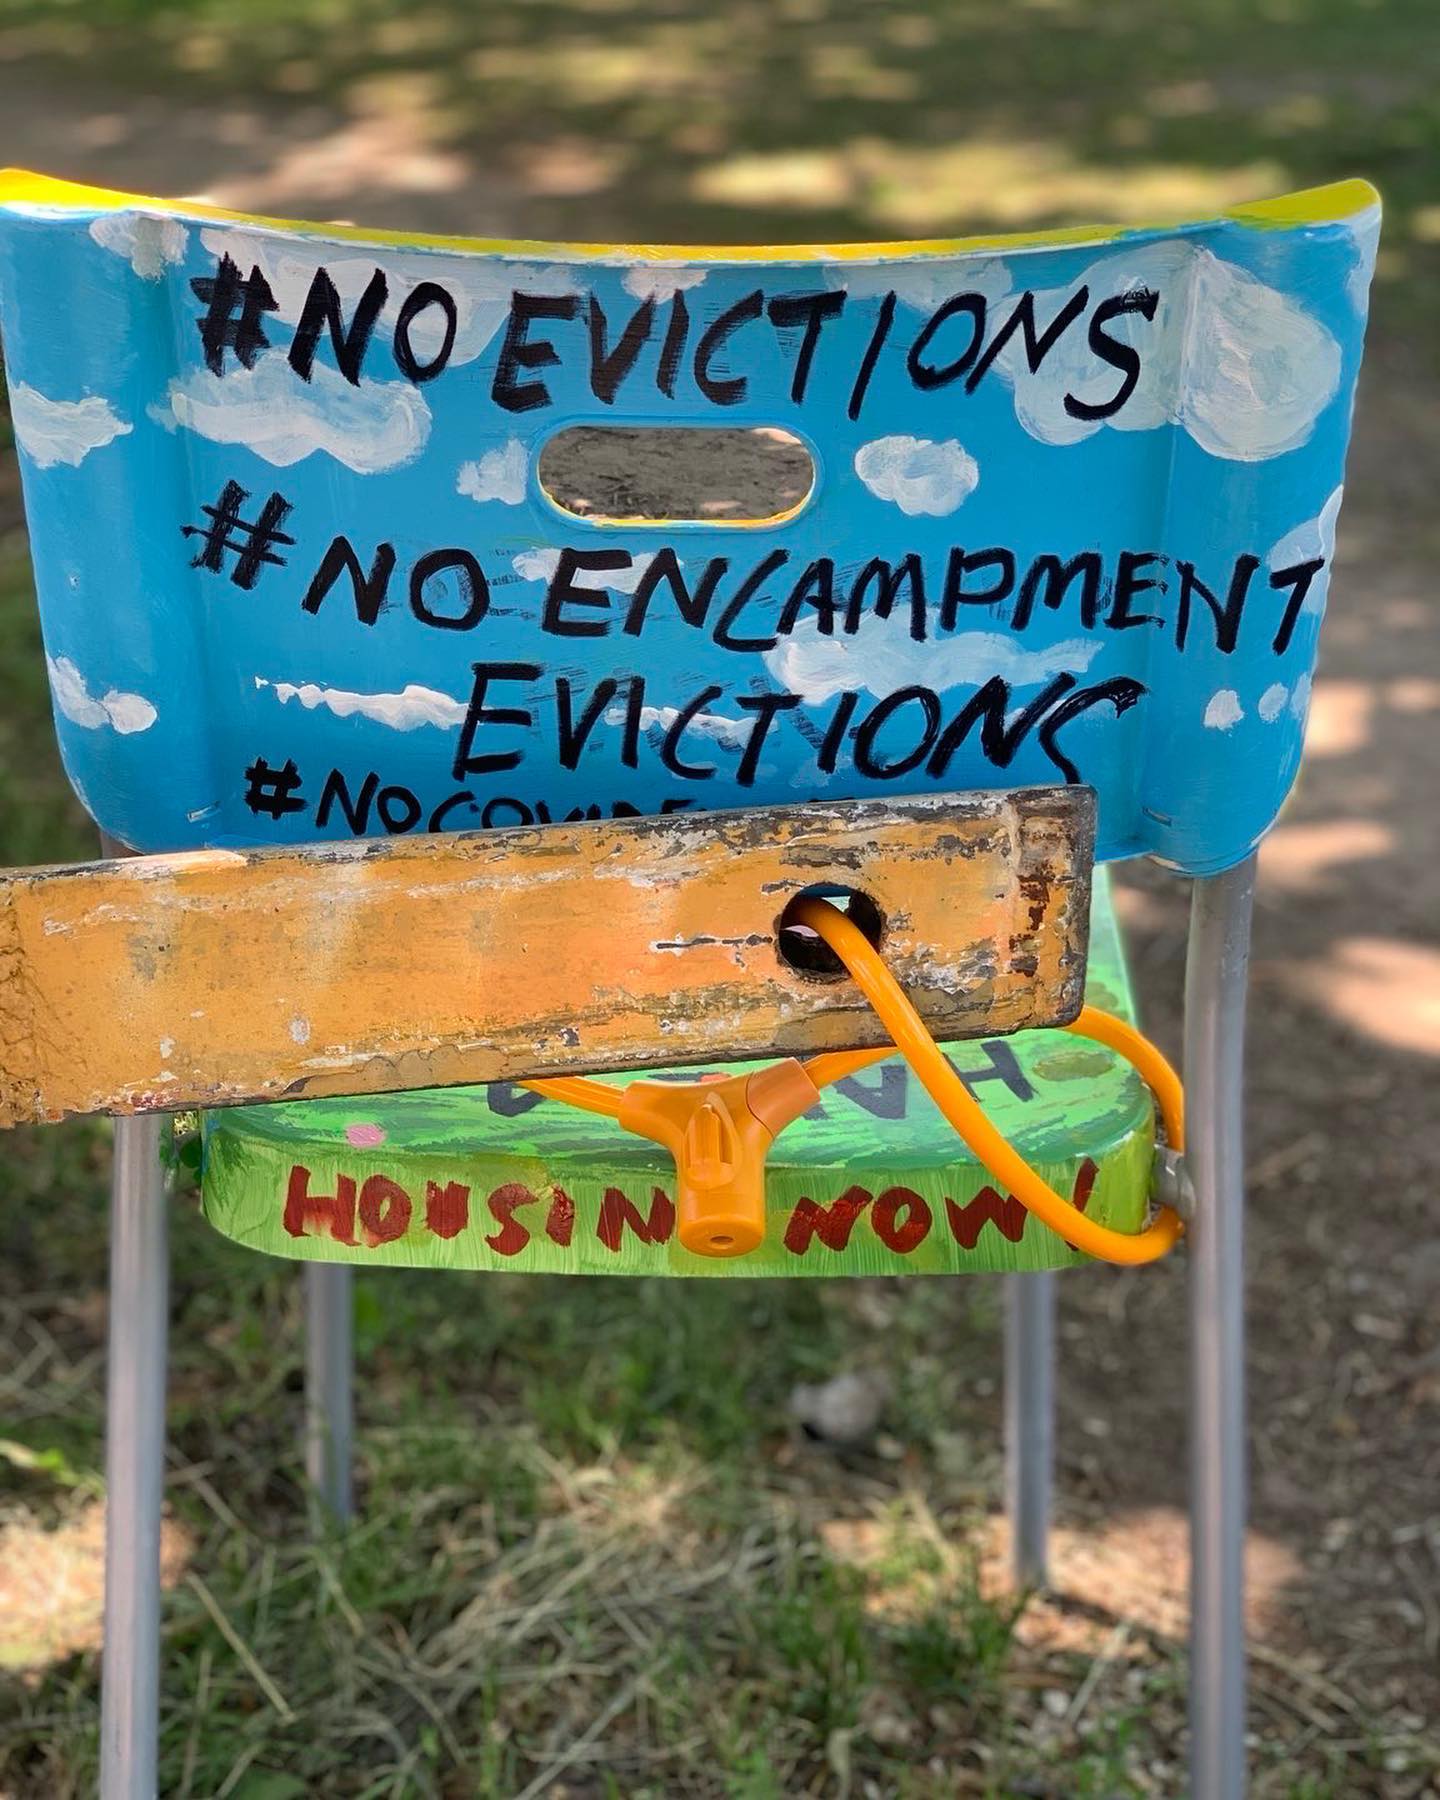 #NO EVICTIONS
#NO ENCAMPMENT
EVICTIONS
HOUSING NOW!